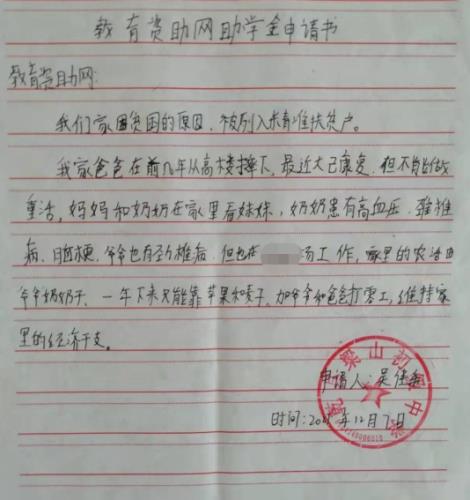 教育资助网助学金申请书
教育资助网:
我们家因贫困的原因,被列入精准扶贫户。
我家爸爸在前几年从高楼摔下,最近才已康复,但不能做
重活,妈妈和奶奶在家里看妹妹,奶奶患有高血压、颈椎
病、脑梗,爷爷也有颈椎病,但也在 场工作,家里的农活由
爷爷奶奶干,一年下来只能靠苹果和麦子。加爷爷和爸爸打零工,维持家
里的经济开支。
申请人:吴佳
时间:20 年12月7日
梁山初级中